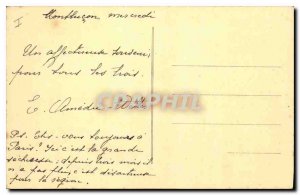 I
Montluçon mercredi
Un affectueux souvenir
pour tous les trois.
E. Amédée
Ps. Etes-vous toujours à
Paris? Ici c'est la grande
sécheresse, depuis trois mois il
n'a pas plu, c'est désastreux
pour la région.